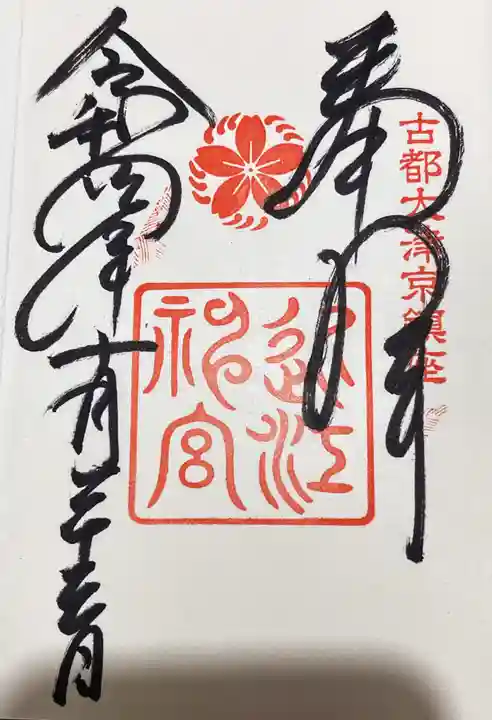 古都大津京鎮座
奉拝
近江
神宮
令和四年